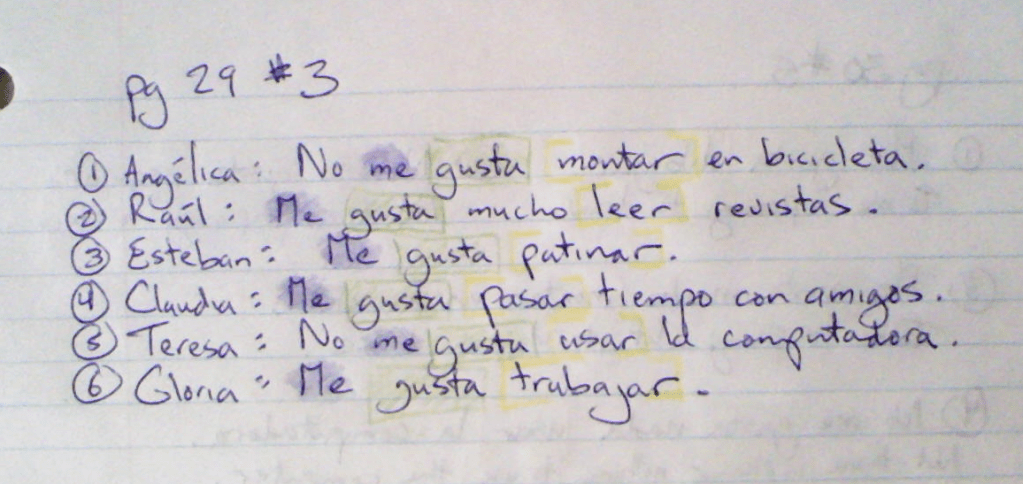 pg 29 #3
① Angélica: No me gusta montar en bicicleta.
② Raúl: Me gusta mucho leer revistas.
③ Esteban: Me gusta patinar.
④ Claudia: Me gusta pasar tiempo con amigos.
⑤ Teresa: No me gusta usar la computadora.
⑥ Gloria: Me gusta trabajar.